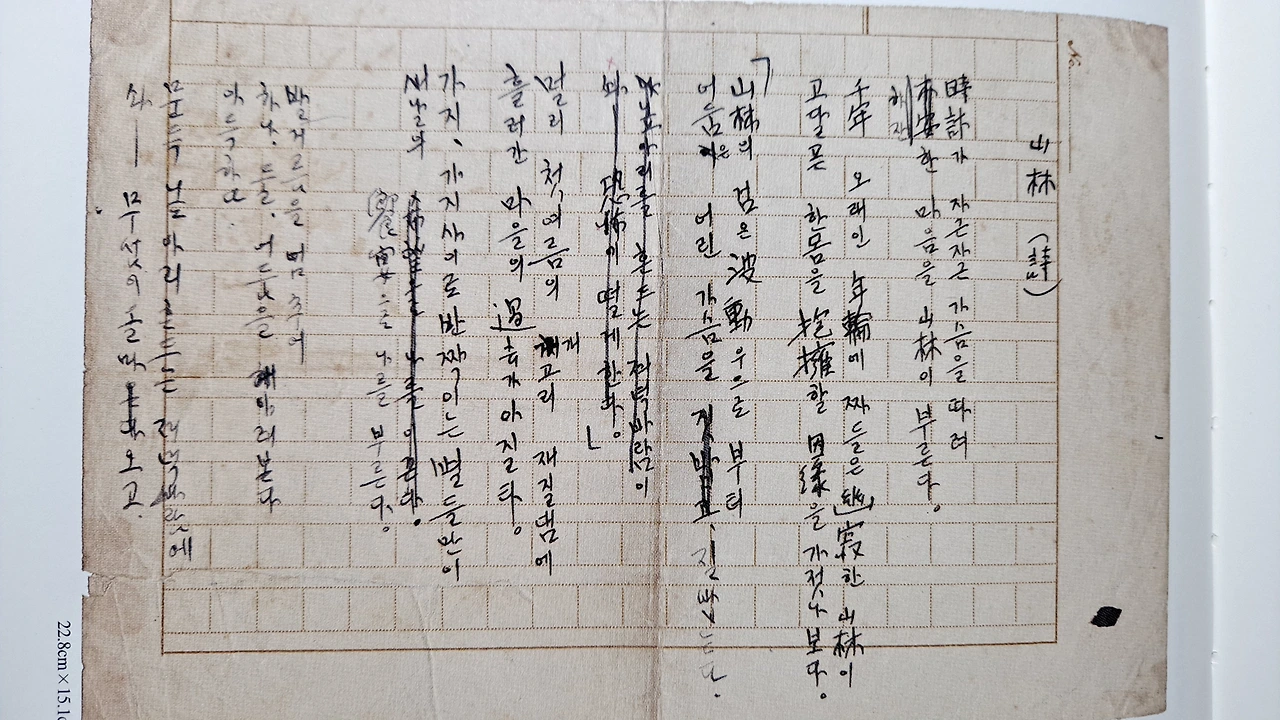 山林 (詩)
時計가 자근자근 가슴을 따려
하잔한 마음을 山林이 부른다。
千年 오래인 年輪에 짜들은 幽寂한 山林이
고달픈 한몸을 抱擁할 因緣을 가젓나보다。
「山林의 검은 波動우으로 부터
어둠은 어린 가슴을 짓밟는다.
흔드는 저녁바람이
솨 恐怖에 떨게한다。」
멀리 첫여름의 개고리 재질댐에
흘러간 마을의 過去가 아질타。
가지、가지사이로 반짝이는 별들만이
새날의
나를 부른다。
발거름을 멈추어
하나、둘、어둠을 헤아려본다
아득하다.
문득 닢아리흔드는 저녁바람에
솨— 무섬이 올마오고.
22.8cm×15.1c